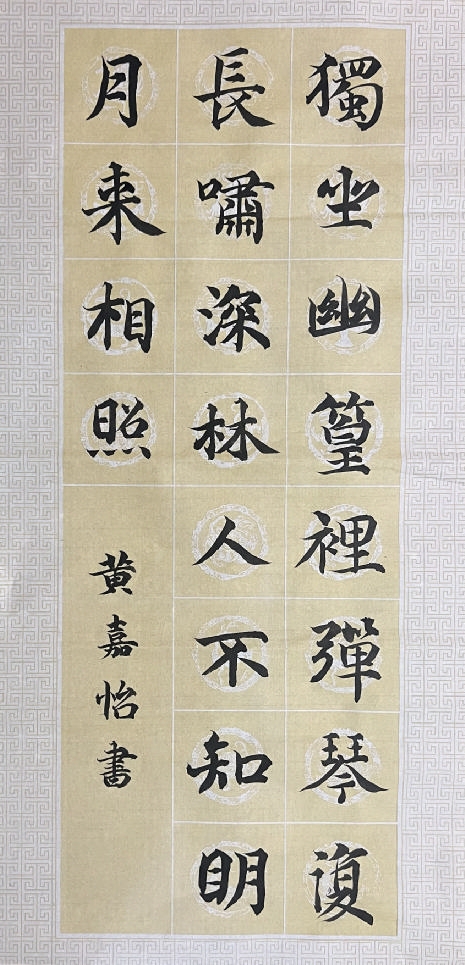 獨坐幽篁裡彈琴復
長嘯深林人不知明
月来相照
黄嘉怡書